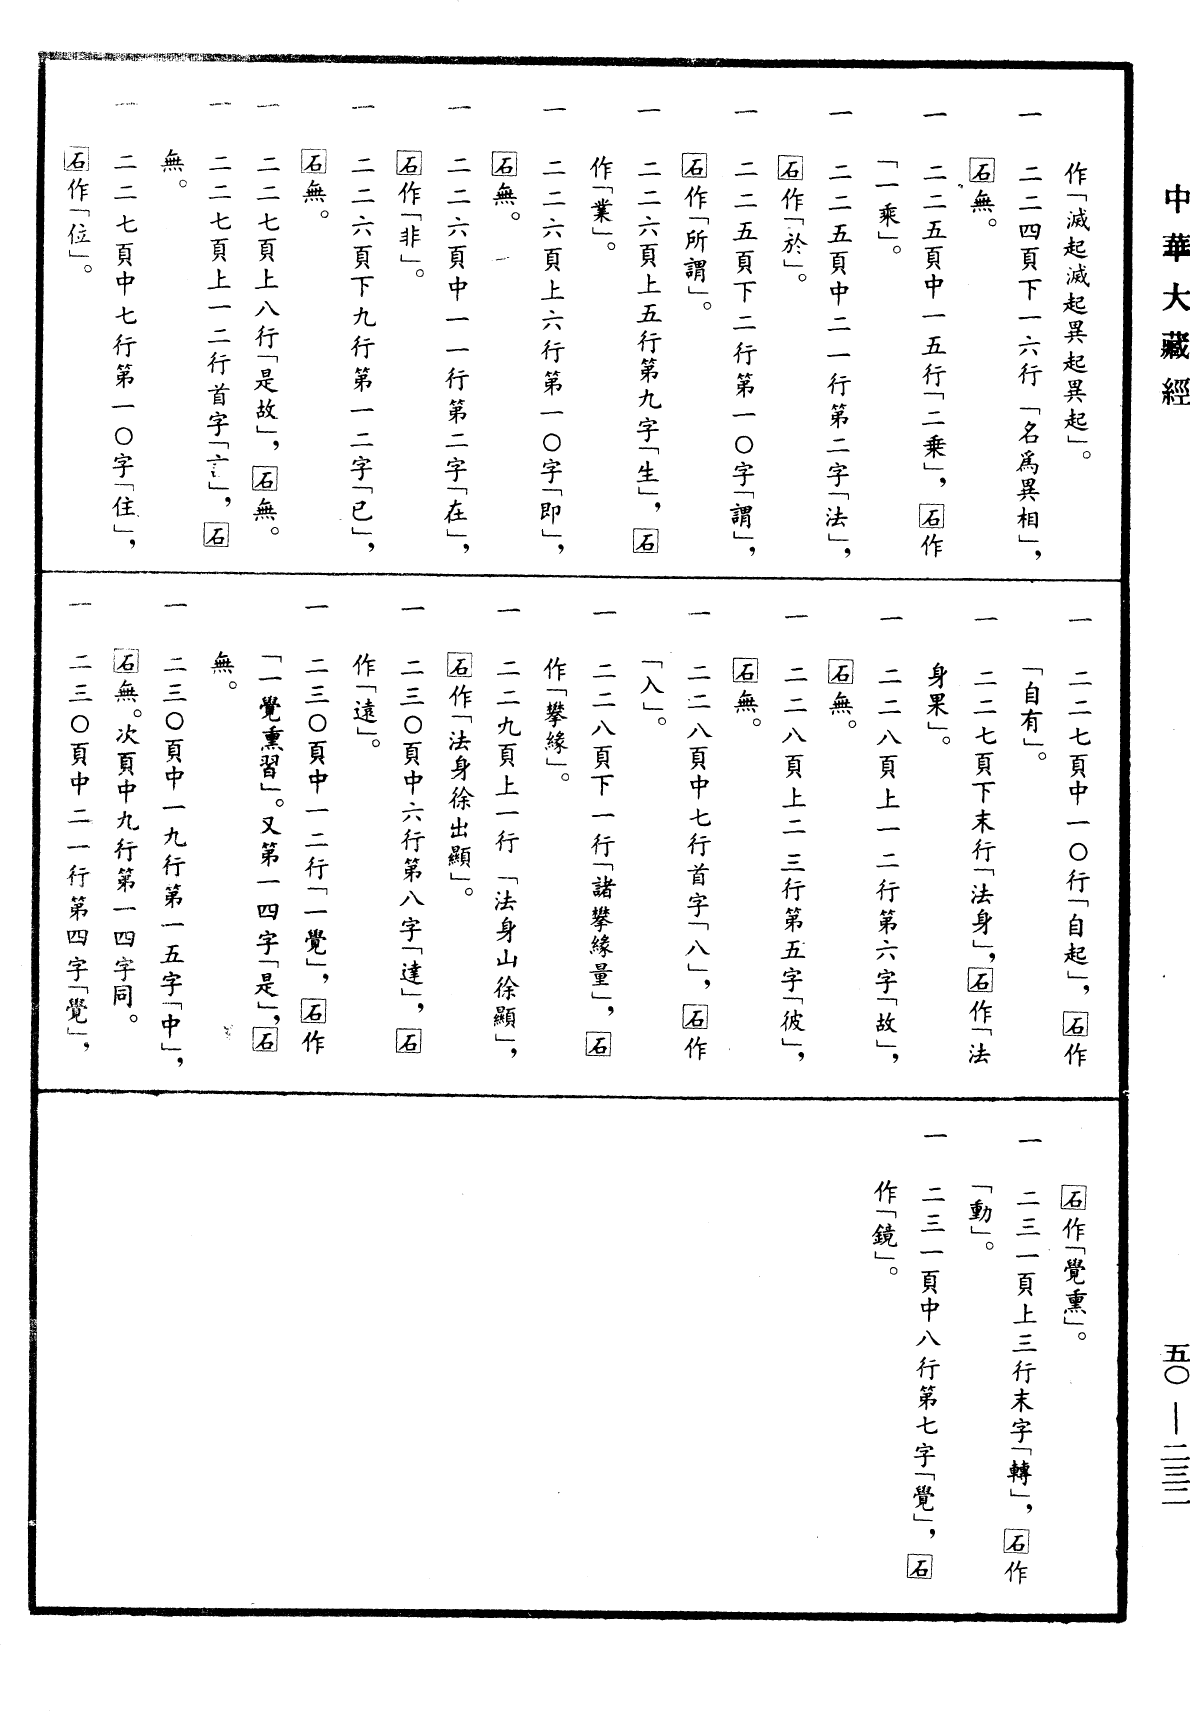 中華大藏經
作「滅起滅起異起異起」。
一　二二四頁下一六行「名爲異相」，
石無。
一　二二五頁中一五行「二乘」，石作
「一乘」。
一　二二五頁中二一行第二字「法」，
石作「於」。
一　二二五頁下二行第一〇字「謂」，
石作「所謂」。
一　二二六頁上五行第九字「生」，石
作「業」。
一　二二六頁上六行第一〇字「即」，
石無。
一　二二六頁中一一行第二字「在」，
石作「非」。
一　二二六頁下九行第一二字「已」，
石無。
一　二二七頁上八行「是故」，石無。
一　二二七頁上一二行首字「言」，石
無。
一　二二七頁中七行第一〇字「住」，
石作「位」。
一　二二七頁中一〇行「自起」，石作
「自有」。
一　二二七頁下末行「法身」，石作「法
身果」。
一　二二八頁上一二行第六字「故」，
石無。
一　二二八頁上二三行第五字「彼」，
石無。
一　二二八頁中七行首字「八」，石作
「入」。
一　二二八頁下一行「諸攀緣量」，石
作「攀緣」。
一　二二九頁上一行「法身山徐顯」，
石作「法身徐出顯」。
一　二三〇頁中六行第八字「達」，石
作「遠」。
一　二三〇頁中一二行「一覺」，石作
「一覺熏習」。又第一四字「是」，石
無。
一　二三〇頁中一九行第一五字「中」，
石無。次頁中九行第一四字同。
一　二三〇頁中二一行第四字「覺」，
石作「覺熏」。
一　二三一頁上三行末字「轉」，石作
「動」。
一　二三一頁中八行第七字「覺」，石
作「鏡」。
五〇—二三二